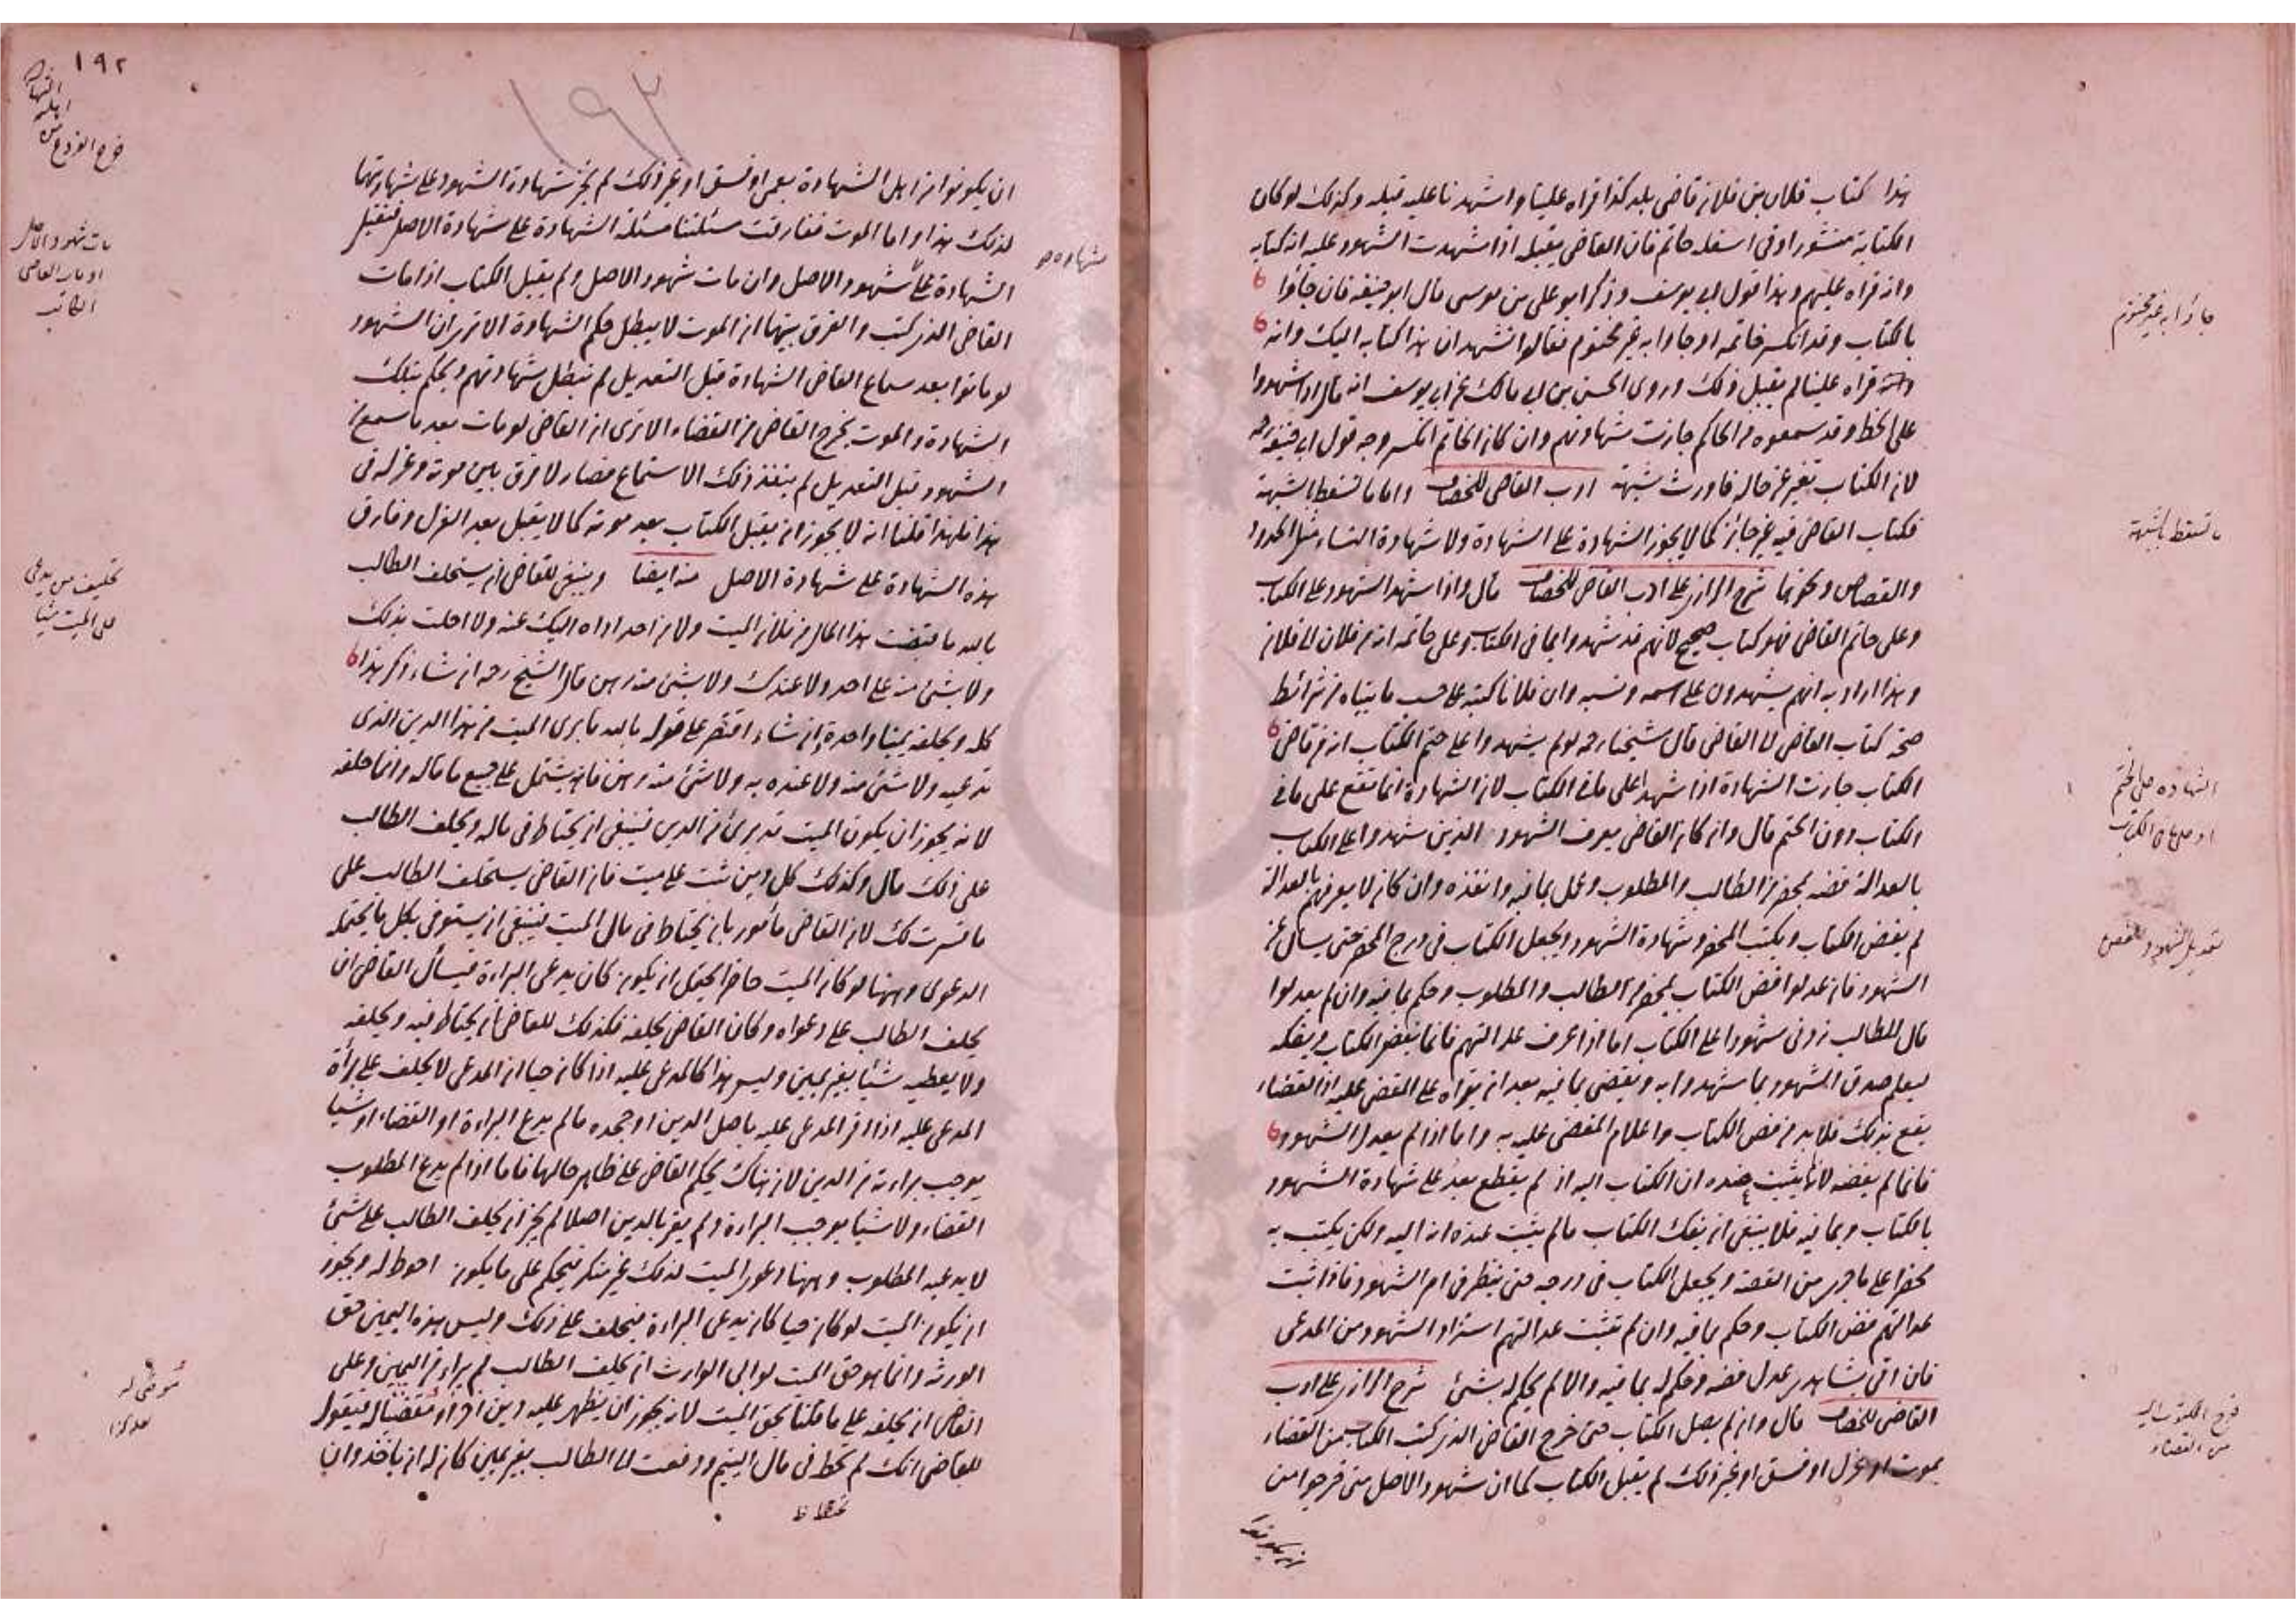 هذا كتاب فلان بن فلان قاضى بلد كذا قراه علينا واشهدنا عليه قبله وكذلك لو كان
الكتابة منشورا وفى اسفله خاتم فان القاضى يقبله اذا شهدت الشهود عليه انه كتابه
وانه قراه عليهم وهذا قول ابى يوسف وذكر ابو على بن موسى قال ابو حنيفة فان جاؤا
بالكتاب وقد انكسر خاتمه او جاوا به غير مختوم فقالوا نشهد ان هذا كتابه اليك وانه
قراه علينا لم يقبل ذلك وروى الحسن بن ابى مالك عن ابى يوسف انه قال اذا شهدوا
على الخط وقد سمعوه من الحاكم جازت شهادتهم وان كان الخاتم انكسر وجه قول ابى حنيفة
لان الكتاب تغير عن حاله فاورث شبهة ادب القاضى للخصاف واما ما تسقط بالشبهة
فكتاب القاضى فيه غير جائز كما لا يجوز الشهادة على الشهادة ولا شهادة النساء مثل الحدود
والقصاص ونحوها شرح الرازى على ادب القاضى للخصاف قال واذا شهد الشهود على الكتاب
وعلى خاتم القاضى فهو كتاب صحيح لانهم قد شهدوا بما فى الكتاب وعلى خاتمه انه من فلان الى فلان
وهذا اراد به انهم يشهدون على اسمه ونسبه وان فلانا كتبه على حسب ما بيناه من شرائط
صحة كتاب القاضى الى القاضى قال شيخنا رحه لو لم يشهدوا على ختم الكتاب انه من قاضى
الكتاب جازت الشهادة اذا شهدا على ما فى الكتاب لان الشهادة انما تقع على ما فى
الكتاب دون الختم قال وان كان القاضى يعرف الشهود الذين شهدوا على الكتاب
بالعدالة فضه بمحضر من الطالب والمطلوب وعمل بما فيه وانفذه وان كان لا يعرفهم بالعدالة
لم يفض الكتاب ويكتب المحضر وشهادة الشهود ويجعل الكتاب فى درج المحضر حتى يسأل عن
الشهود فان عدلوا فض الكتاب بمحضر من الطالب والمطلوب وحكم بما فيه وان لم يعدلوا
قال للطالب زدنى شهودا على الكتاب اما اذا عرف عدالتهم فانما يفض الكتاب ويفكه
ليعلم صدق الشهود بما شهدوا به ويقضى بما فيه بعد ان يقراه على المقضى عليه اذ القضاء
يقع بذلك فلا بد من فض الكتاب واعلام المقضى عليه به واما اذا لم يعدل الشهود
فانما لم يفضه لانه لم يثبت عنده ان الكتاب اليه اذ لم يقطع بعد على شهادة الشهود
بالكتاب وبما فيه فلا ينبغى ان يفك الكتاب ما لم يثبت عنده انه اليه ولكن يكتب به
محضرا على ما جرى من القصة ويجعل الكتاب فى درجه حتى ينظر فى امر الشهود فاذا ثبت
عدالتهم فض الكتاب وحكم بما فيه وان لم تثبت عدالتهم استزاد الشهود من المدعى
فان اتى بشاهدى عدل فضه وحكم له بما فيه والا لم يحكم له بشئ شرح الرازى على ادب
القاضى للخصاف قال وان لم يصل الكتاب حتى خرج القاضى الذى كتب الكتاب من القضاء
بموت او عزل او فسق او غير ذلك لم يقبل الكتاب كما ان شهود الاصل متى خرجوا من
جاوا به غير مختوم
ما تسقط بالشبهة
الشهادة على الختم
او على ما فى الكتاب
تعديل الشهود
خرج المكتوب اليه
من القضاء
١٩٢
١٩٢
ان يكونوا من اهل الشهادة بعمى او فسق او غير ذلك لم يجز شهادة الشهود على شهادتهما
لذلك هذا واما الموت ففارقت مسئلتنا مسئلة الشهادة على شهادة الاصل فتقبل
الشهادة على شهود الاصل وان مات شهود الاصل ولم يقبل الكتاب اذا مات
القاضى الذى كتب والفرق بينهما ان الموت لا يبطل حكم الشهادة الا ترى ان الشهود
لو ماتوا بعد سماع القاضى الشهادة قبل التعديل لم تبطل شهادتهم ويحكم بتلك
الشهادة والموت يخرج القاضى من القضاء الا ترى ان القاضى لو مات بعد ما سمع من
الشهود قبل التعديل لم ينفذ ذلك الاستماع فصار لا فرق بين موته وعزله فى
هذا فلهذا قلنا انه لا يجوز ان يقبل الكتاب بعد موته كما لا يقبل بعد العزل وفارق
هذه الشهادة على شهادة الاصل منه ايضا وينبغى للقاضى ان يستحلف الطالب
بالله ما قبضت هذا المال من فلان الميت ولا من احد اداه اليك عنه ولا احلت بذلك
ولا بشئ منه على احد ولا عندك ولا بشئ منه رهن قال الشيخ رحه ان شاء ذكر هذا
كله ويحلفه يمينا واحدة وان شاء اقتصر على قوله بالله ما برى الميت من هذا الدين الذى
تدعيه ولا شئ منه ولا عنده به ولا شئ منه رهن فانه يشتمل على جميع ما قاله وانما حلفه
لانه يجوز ان يكون الميت قد برئ من الدين فينبغى ان يحتاط فى ماله ويحلف الطالب
على ذلك قال وكذلك كل دين ثبت على ميت فان القاضى يستحلف الطالب على
ما فسرت لك لان القاضى مأمور بان يحتاط فى مال الميت فينبغى ان يستوفى بكل ما يحتمله
الدعوى وههنا لو كان الميت حاضرا يحتمل ان يكون كان يدعى البراءة فيسأل القاضى ان
يحلف الطالب على دعواه وكان القاضى يحلفه فكذلك للقاضى ان يحتاط فيه ويحلفه
ولا يعطيه شئا بغير يمين وليس هذا كالمدعى عليه اذا كان حيا ان المدعى لا يحلف على برأة
المدعى عليه اذا اقر المدعى عليه باصل الدين او جحده ما لم يدع البراءة او القضاء او شيا
يوجب براءته من الدين لان هناك يحكم القاضى على ظاهر حالها فاما اذا لم يدع المطلوب
القضاء ولا شيا يوجب البراءة ولم يقر بالدين اصلا لم يجز ان يحلف الطالب على شئ
لا يدعيه المطلوب وههنا دعوى الميت لذلك غير منكر فيحكم على ما يكون احوط له ويجوز
ان يكون الميت لو كان حيا كان يدعى البراءة فيحلف على ذلك وليس هذه اليمين حق
الورثة وانما هو حق الميت لو ابى الوارث ان يحلف الطالب لم يبراء من اليمين وعلى
القاضى ان يحلفه على ما قلنا بحق الميت لانه يجوز ان يظهر عليه دين اخر او مقتضا له فيقول
للقاضى انك لم تحط فى مال اليتيم ودفعت الى الطالب بغير يمين كان له ان ياخذ وان
مات شهود الاصل
او مات القاضى
الكاتب
تحليف من يدعى
على الميت شيا